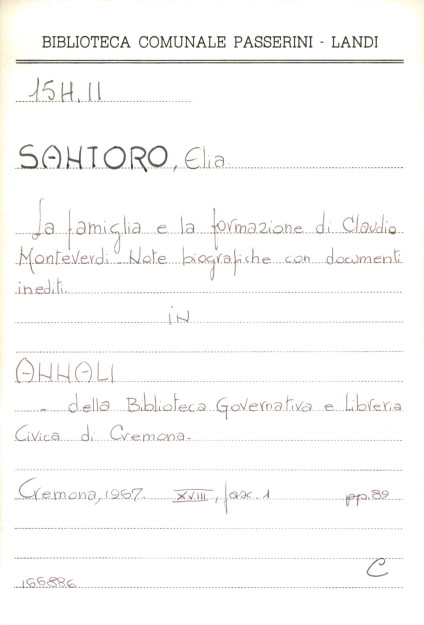 BIBLIOTECA COMUNALE PASSERINI - LANDI
15H.II
SANTORO, Elia.
La famiglia e la formazione di Claudio
Monteverdi. Note biografiche con documenti
inediti.
IN
ANNALI
- della Biblioteca Governativa e Libreria
Civica di Cremona.
Cremona, 1967. XVIII, fasc. 1 pp. 89
C
166886